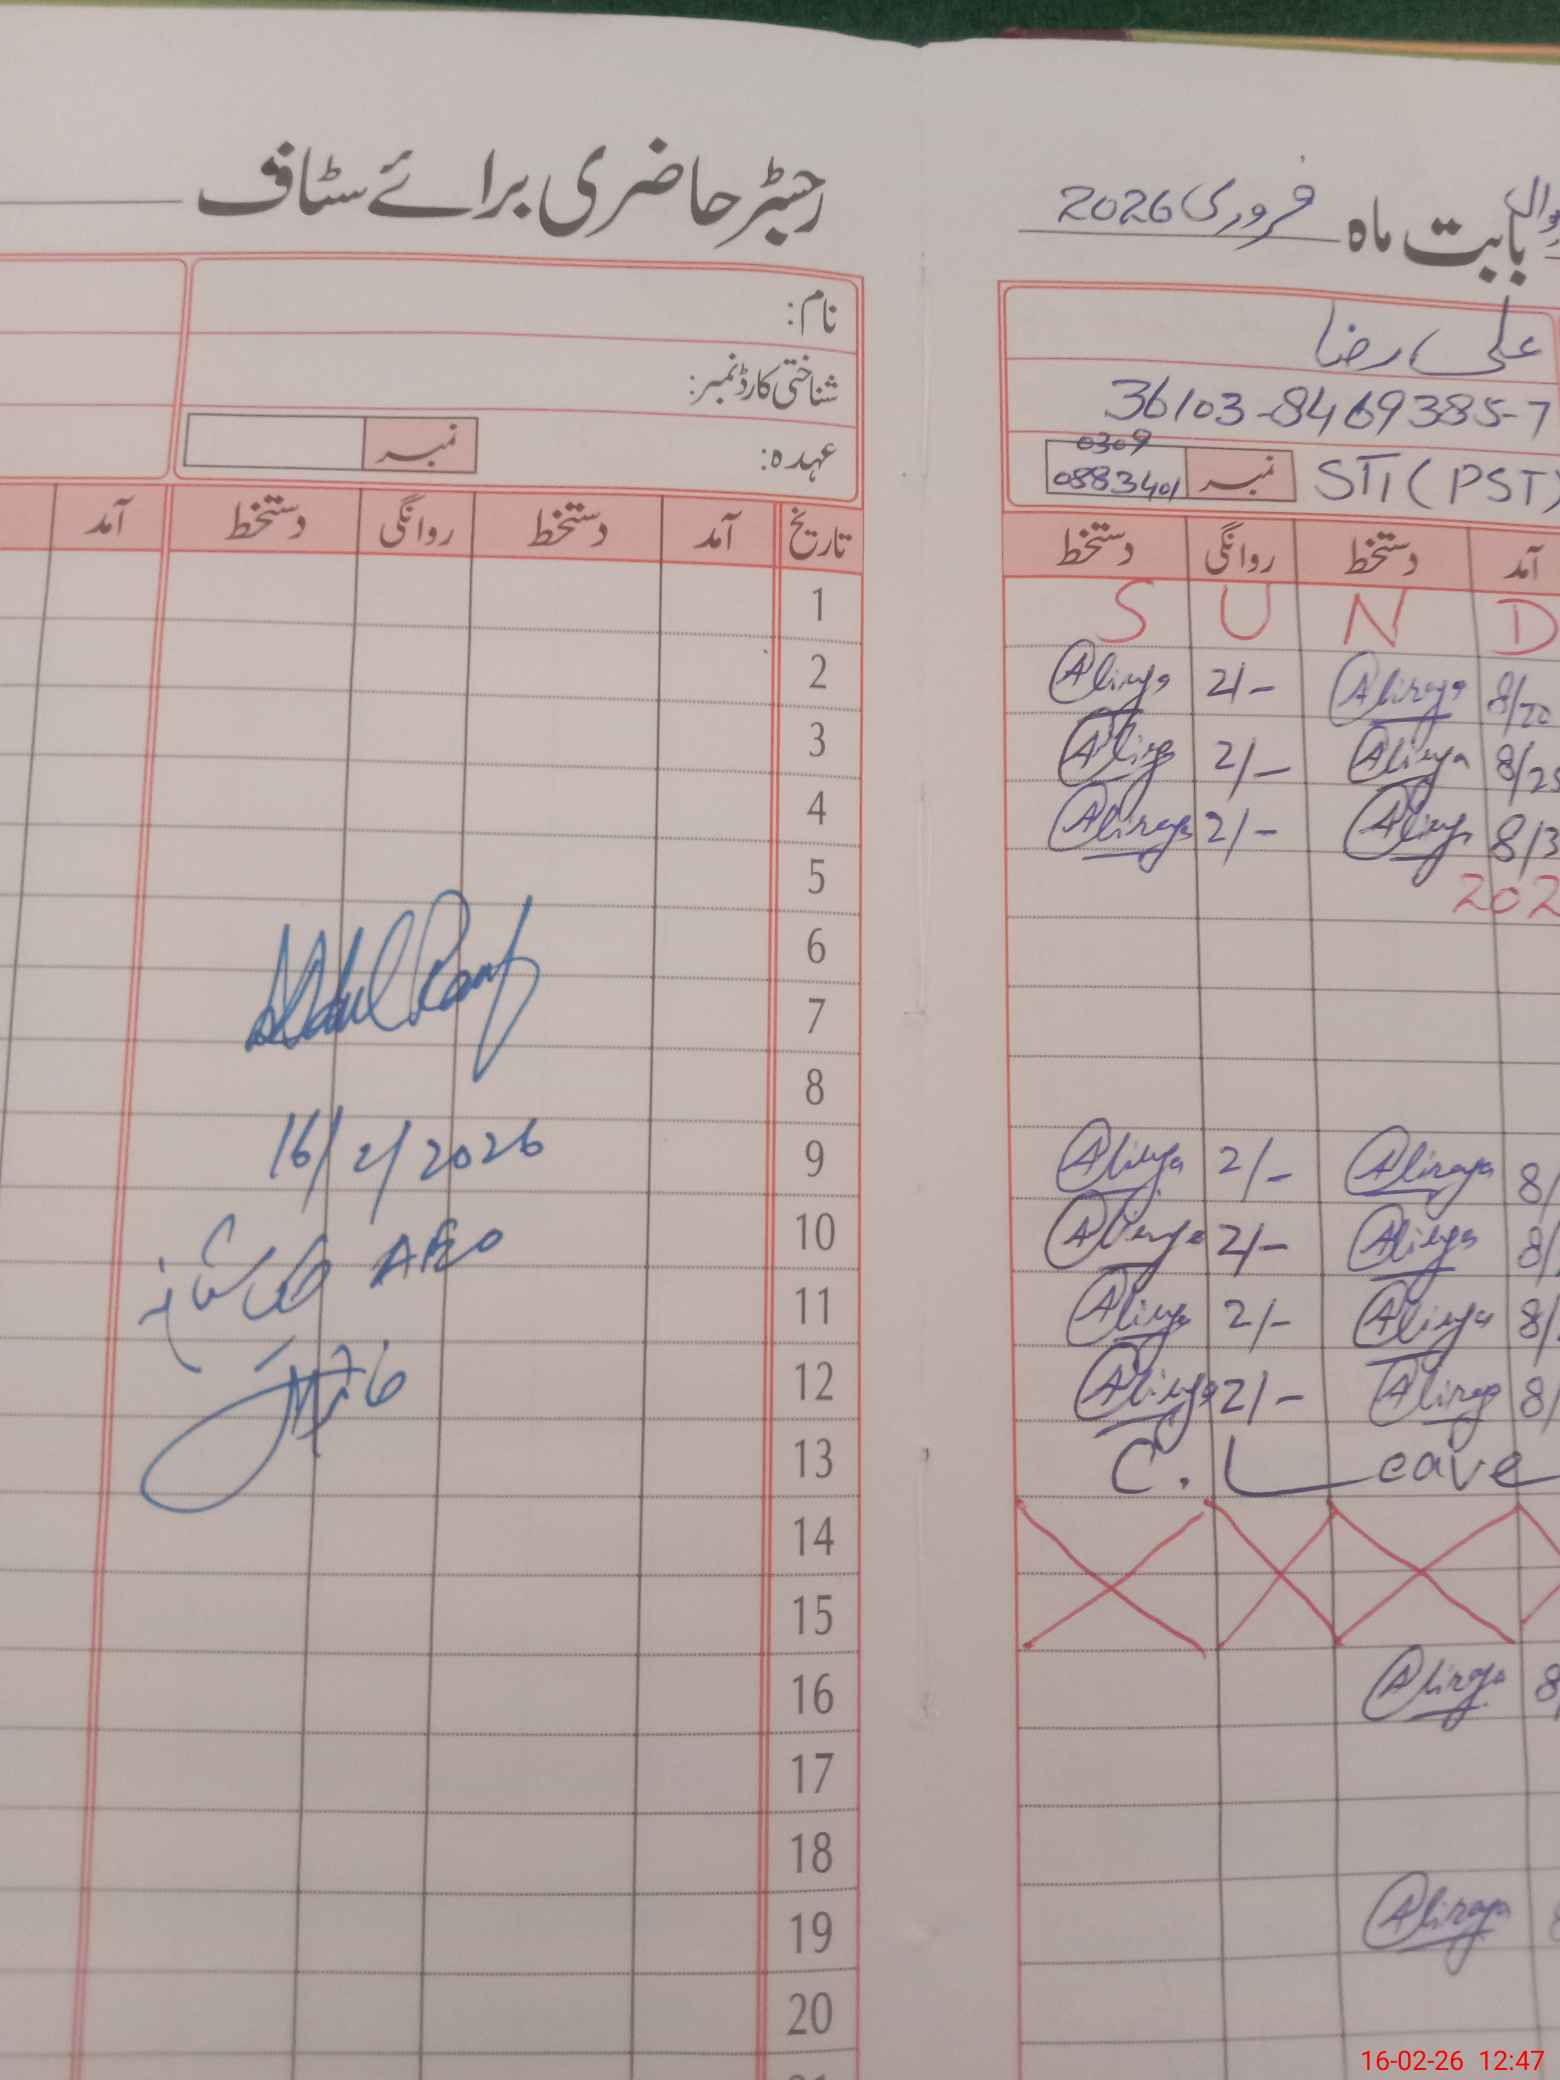 رجسٹر حاضری برائے سٹاف
بابت ماہ فروری 2026
نام:
شناختی کارڈ نمبر:
عہدہ:
نمبر
تاریخ آمد دستخط روانگی دستخط آمد
1
2
3
4
5
6
7
8
9
10
11
12
13
14
15
16
17
18
19
20
Abdul Rauf
16/2/2026
AEO
علی رضا
36103-8469385-7
STI (PST)
نمبر
0309
0883401
آمد دستخط روانگی دستخط
S U N D
8/20 Aliraza 2/- Aliraza
8/25 Aliraza 2/- Aliraza
8/3 Aliraza 2/- Aliraza
202
8/ Aliraza 2/- Aliraza
8/ Aliraza 2/- Aliraza
8/ Aliraza 2/- Aliraza
8/ Aliraza 2/- Aliraza
C. Leave
8/ Aliraza
Aliraza
16-02-26 12:47